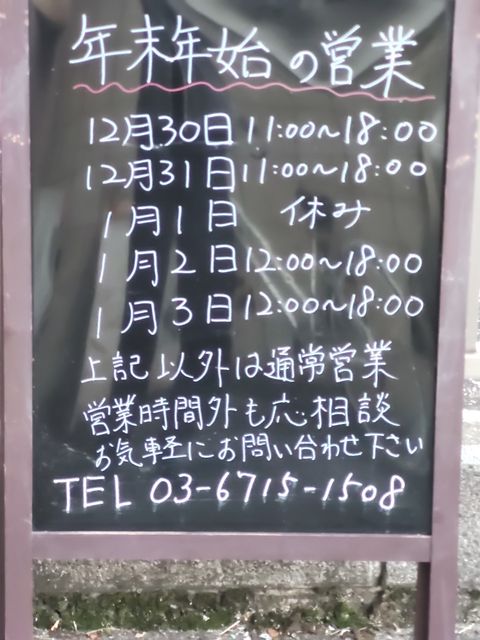 年末年始の営業
12月30日 11:00~18:00
12月31日 11:00~18:00
1月1日 休み
1月2日 12:00~18:00
1月3日 12:00~18:00
上記以外は通常営業
営業時間外も応相談
お気軽にお問い合わせ下さい
TEL 03-6715-1508